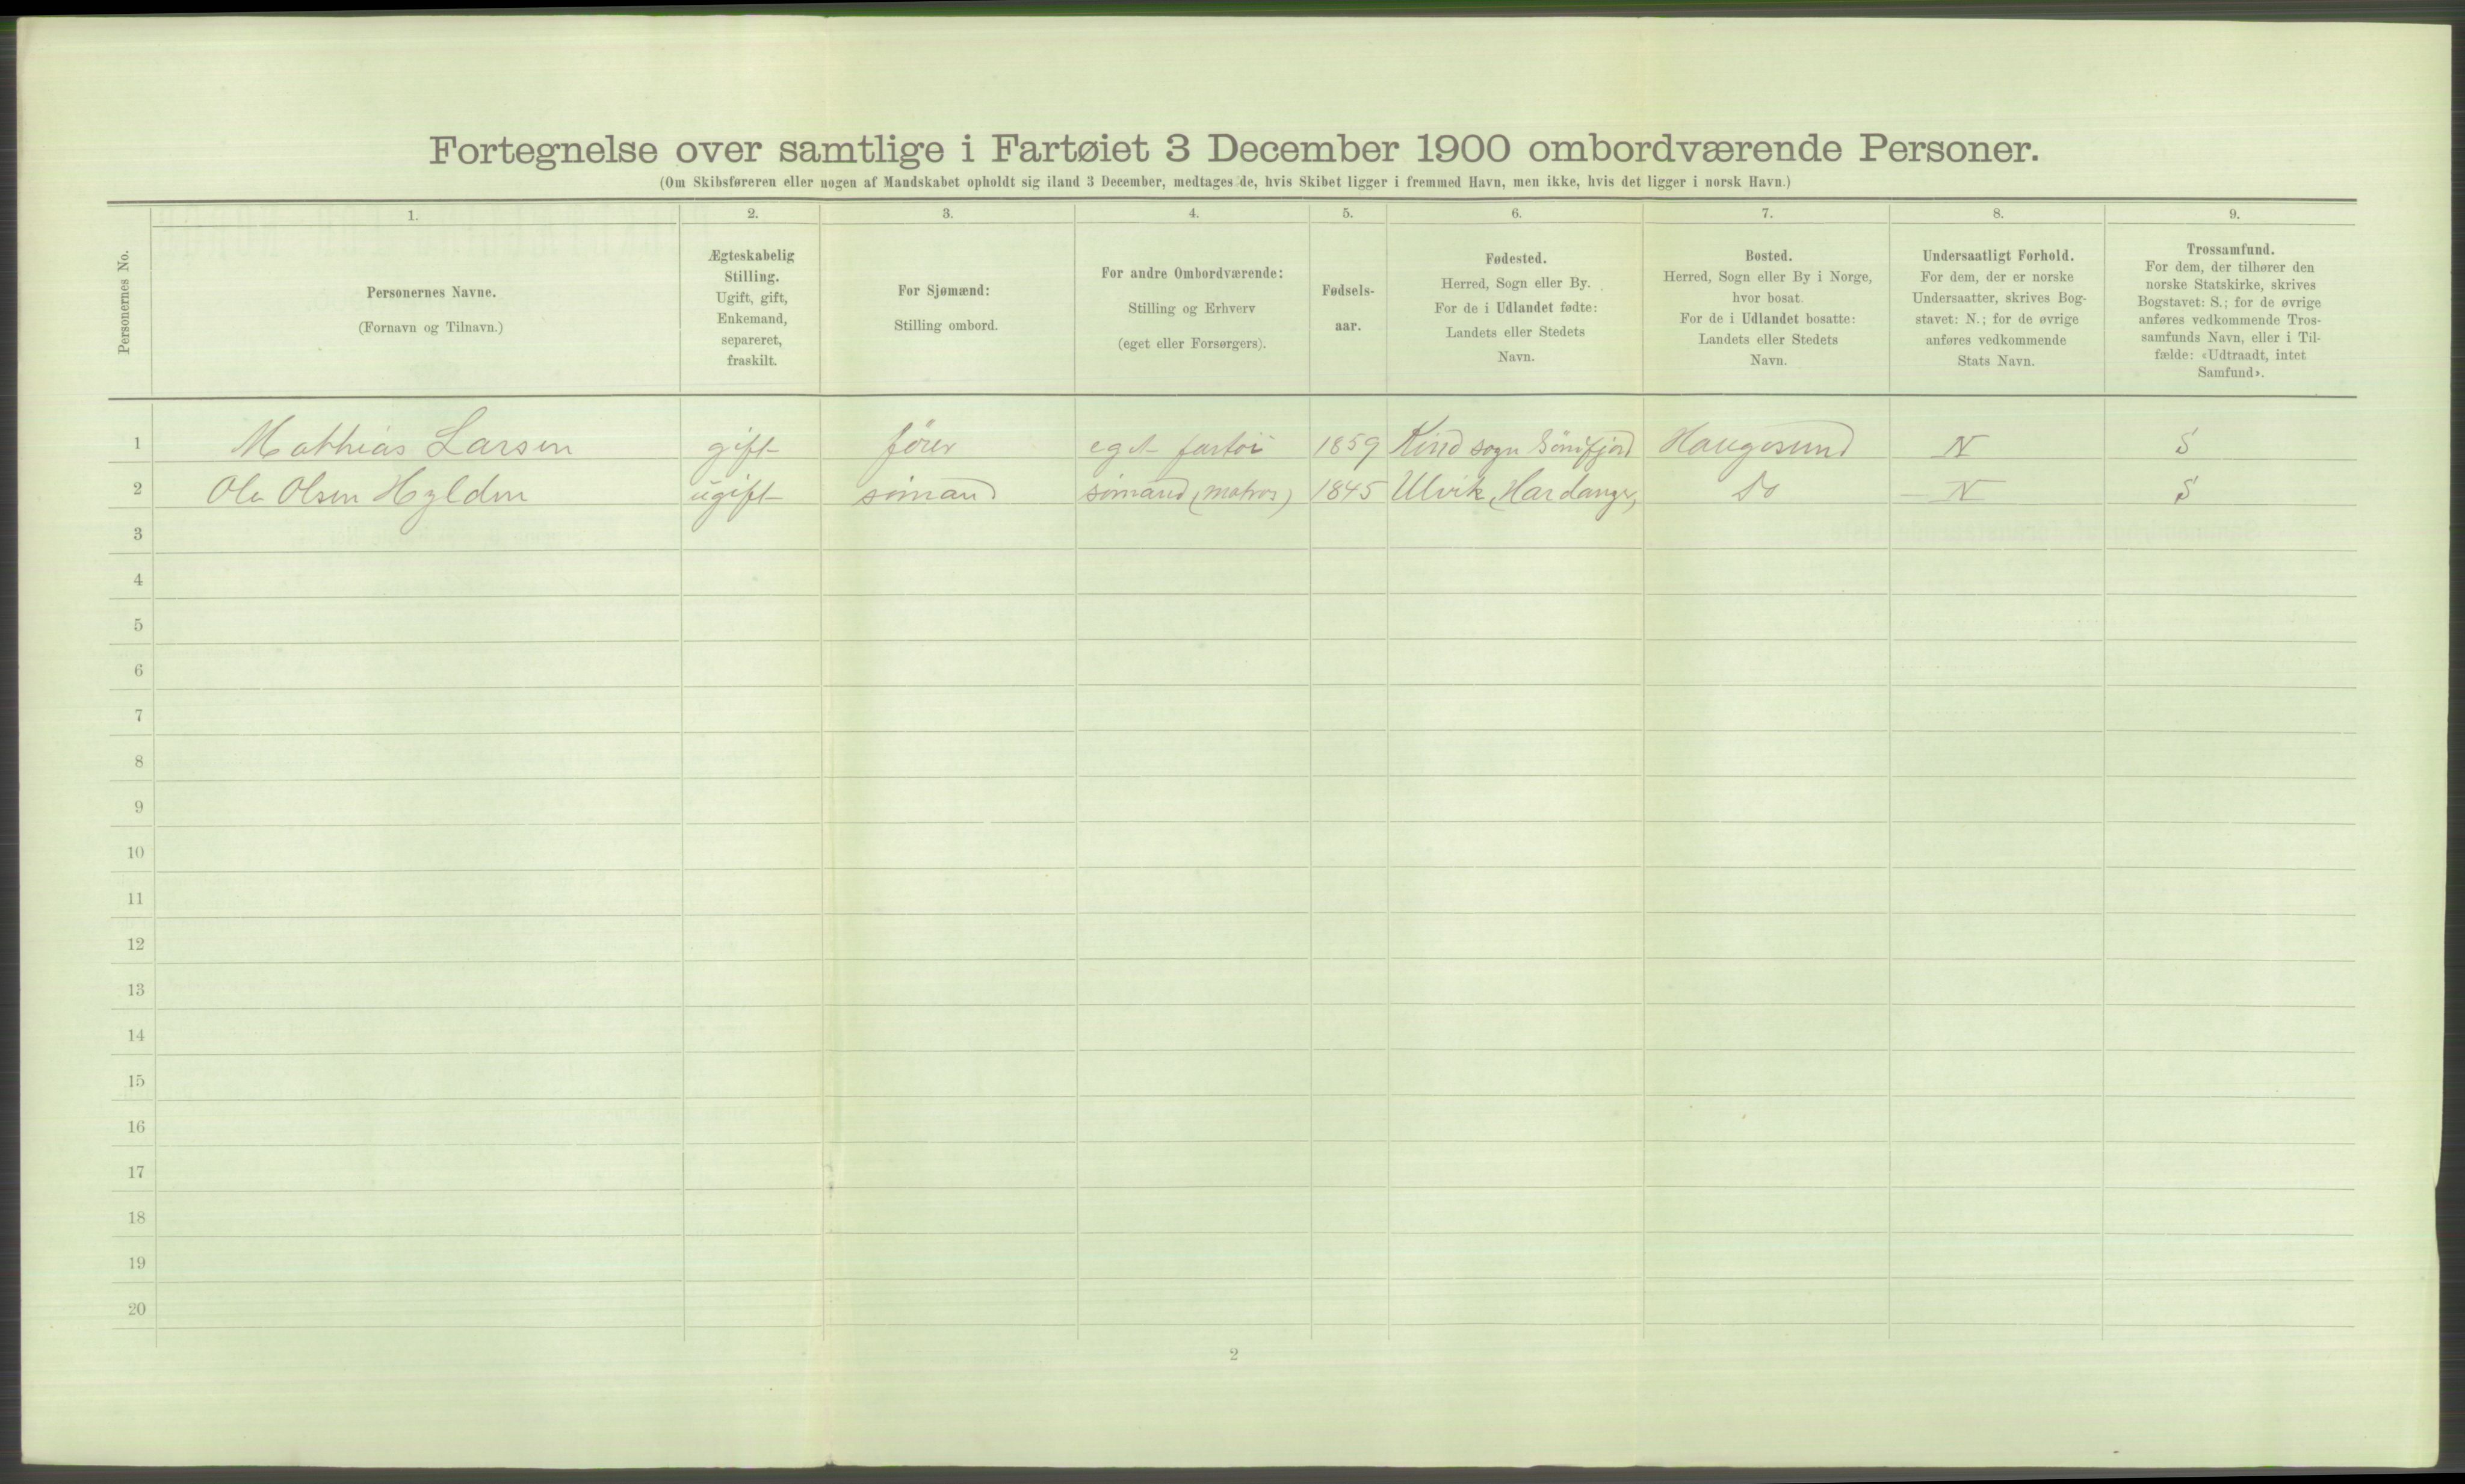 Fortegnelse over samtlige i Fartøiet 3 December 1900 ombordværende Personer.
(Om Skibsføreren eller nogen af Mandskabet opholdt sig iland 3 December, medtages de, hvis Skibet ligger i fremmed Havn, men ikke, hvis det ligger i norsk Havn.)
Personernes No.
1.
Personernes Navne.
(Fornavn og Tilnavn.)
2.
Ægteskabelig
Stilling.
Ugift, gift,
Enkemand,
separeret,
fraskilt.
3.
For Sjømænd:
Stilling ombord.
4.
For andre Ombordværende:
Stilling og Erhverv
(eget eller Forsørgers).
5.
Fødsels-
aar.
6.
Fødested.
Herred, Sogn eller By.
For de i Udlandet fødte:
Landets eller Stedets
Navn.
7.
Bosted.
Herred, Sogn eller By i Norge,
hvor bosat.
For de i Udlandet bosatte:
Landets eller Stedets
Navn.
8.
Undersaatligt Forhold.
For dem, der er norske
Undersaatter, skrives Bog-
stavet: N.; for de øvrige
anføres vedkommende
Stats Navn.
9.
Trossamfund.
For dem, der tilhører den
norske Statskirke, skrives
Bogstavet: S.; for de øvrige
anføres vedkommende Tros-
samfunds Navn, eller i Til-
fælde: «Udtraadt, intet
Samfund».
1 Mathias Larsen gift fører eget fartøi 1859 Kind sogn Søndfjord Haugesund N S
2 Ole Olsen Hylden ugift sömand sömand (matros) 1845 Ulvik, Hardanger, Do N S
3
4
5
6
7
8
9
10
11
12
13
14
15
16
17
18
19
20
2